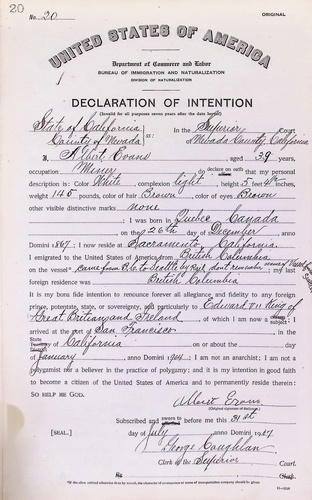 20
No. 20
ORIGINAL
UNITED STATES OF AMERICA
Department of Commerce and Labor
BUREAU OF IMMIGRATION AND NATURALIZATION
DIVISION OF NATURALIZATION
DECLARATION OF INTENTION
(Invalid for all purposes seven years after the date hereof)
State of California
County of Nevada
ss:
In the Superior Court
Nevada County, California
I, Albert Evans, aged 39 years,
occupation Miner, do declare on oath that my personal
description is: Color White, complexion light, height 5 feet inches,
weight 145 pounds, color of hair Brown, color of eyes Brown
other visible distinctive marks none
; I was born in Quebec Canada
on the 26th day of December, anno
Domini 1867; I now reside at Sacramento, California.
I emigrated to the United States of America from British Columbia
on the vessel came from B.C. to Seattle by Rail dont remember name of Vessel from Seattle; my last
foreign residence was British Columbia
It is my bona fide intention to renounce forever all allegiance and fidelity to any foreign
prince, potentate, state, or sovereignty, and particularly to Edward VII King of
Great Britian and Ireland, of which I am now a subject; I
arrived at the port of San Francisco, in the
State
Territory
District
of California on or about the day
of January, anno Domini; I am not an anarchist; I am not a
polygamist nor a believer in the practice of polygamy; and it is my intention in good faith
to become a citizen of the United States of America and to permanently reside therein:
SO HELP ME GOD.
Albert Evans
(Original signature of declarant)
Subscribed and sworn to before me this 31st
[SEAL.] day of July, anno Domini 1907
George Coughlan
Clerk of the Superior Court.